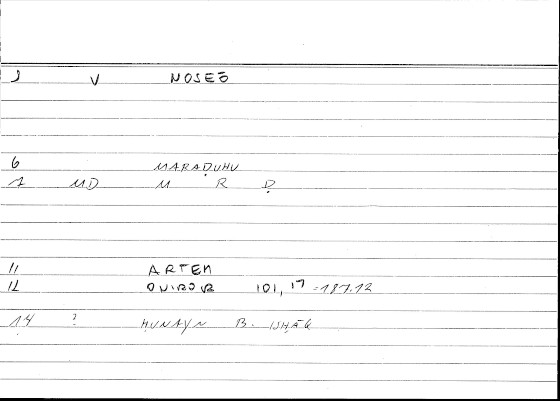 1 V NOSEŌ
6 MARAḌUHU
1 MD M R Ḍ
11 ARTEM
12 OVIROR 101, 17 = 187.12
14 ? ḤUNAYN B. ISḤĀQ